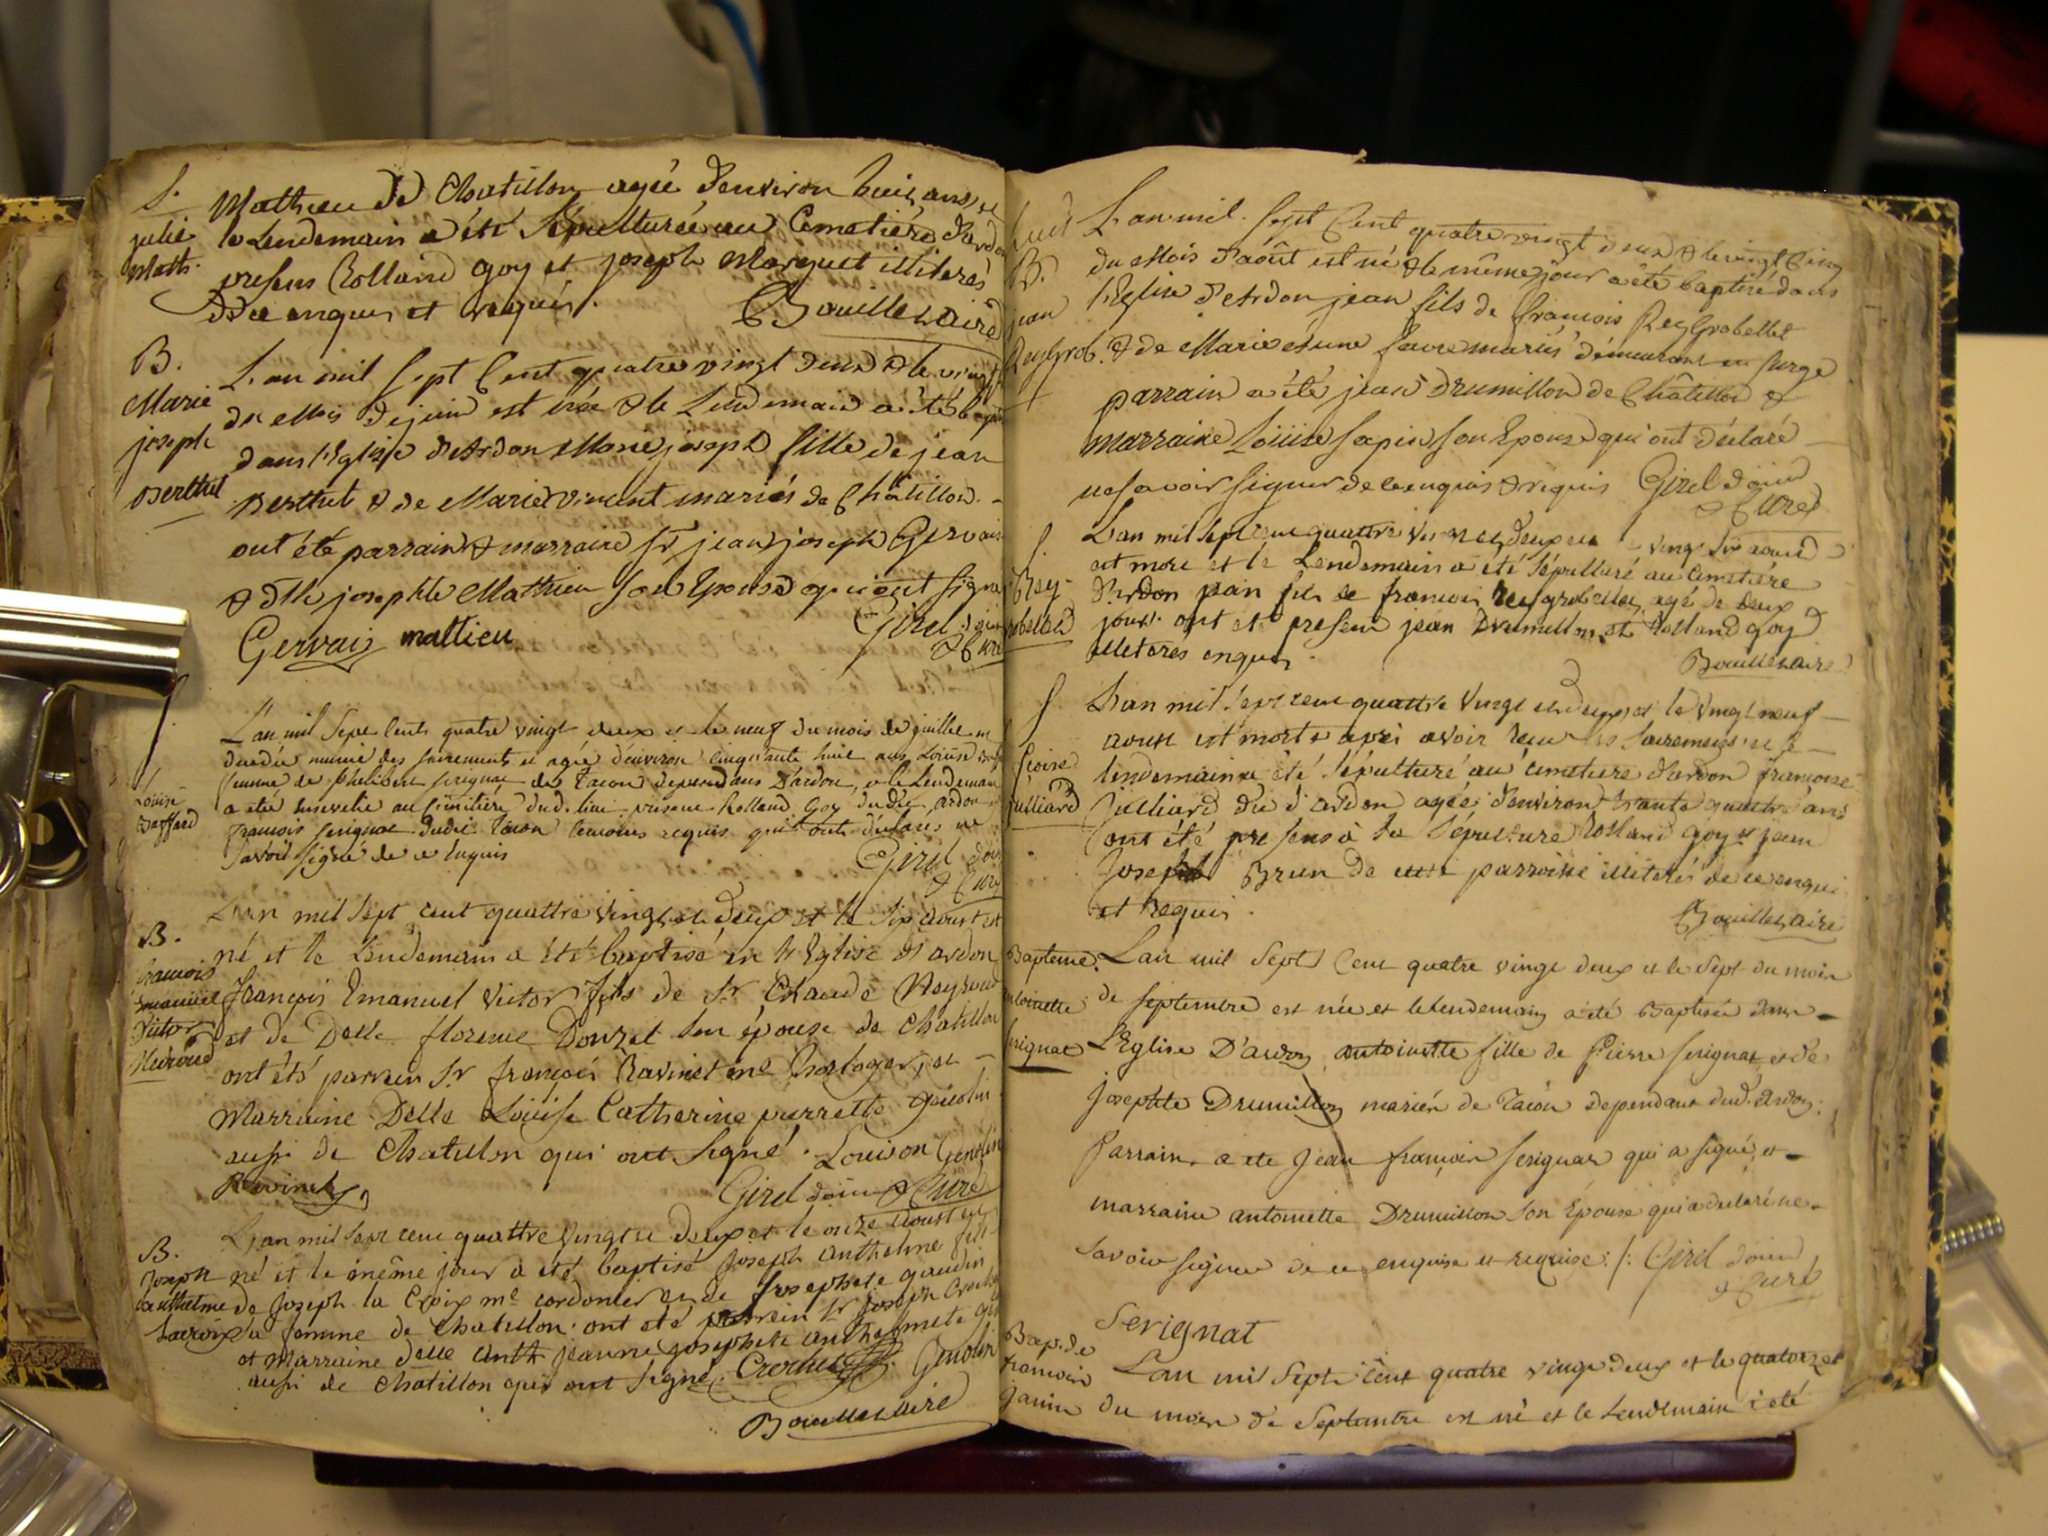 S.
julie
Math.
Mathieu de Chatillon agée d'environ huit ans et
le Lendemain a été Sepulturée au Cemetiére d'ardon
presens Rolland Goy et joseph Marquet illiterés
de ce enquis et requis.
Bouillesaire
B.
Marie
joseph
Berthet
L'an mil sept Cent quatre vingt deux & le vingt
du Mois de juin est née & le Lendemain a été bap
dans l'Eglise d'Ardon Marie joseph fille de jean
Berthet & de Marie Vincent mariés de Châtillon.
ont été parrain & marraine Sr jean joseph Gervais
& dlle josephte Mathieu son Epouse qui ont signé
Girel doien
& Curé
Gervais mattieu
S.
Louise
Baffard
L'an mil Sept Cents quatre vingt deux et le neuf du mois de juillet
decedée munie des sacrements et agée d'environ cinquante huit ans Louise
femme de philibert serignat de Tacon dependans D'ardon, et le Lendemain
a etée ensevelie au Cimitiére dud. lieu presens Rolland Goy dudit ardon et
françois serignat dudit Tacon temoins requis qui ont déclarés ne
savoir signé de ce enquis
Girel doien
& Curé
B.
francois
Emanuel
Victor
L'an mil sept cent quattre vingt et deux et le six aoust est
né et le Lendemain a été baptisé en l'Eglise d'ardon
françois Emanuel Victor fils de Sr Claude
et de Delle florence Douzet son épouse de Chatillon
ont étés parrein Sr françois Ravinet me horloger, et
Marraine Delle Loüise Catherine pierrette
aussi de Chatillon qui ont signé. Louison Genolin
Ravinet
Girel doien & Curé
B.
Joseph
anthelme
Lacroix
L'an mil sept cent quattre vingt et deux et le onze aoust est
né et le même jour a eté baptisé Joseph anthelme fils
de Joseph la Croix me cordonier et de Josephte gaudin
sa femme de Chatillon. ont eté parrein Sr Joseph Crochet
et Marraine delle anth jeanne josephte anthelmete
aussi de Chatillon qui ont signé. Crochet Genolin
Bouillesaire
B.
jean
ReyGrob.
L'an mil sept Cent quatre vingt deux & le vingt Cinq
du Mois d'août est né & le même jour a été baptisé dans
l'Eglise d'Ardon jean fils de françois Rey Grobellet
& de Marie favre mariés demeurant en Surge
parrain a été jean Drumillon de Châtillon &
marraine Loüise Sapin son Epouse qui ont déclaré
ne savoir signer de ce enquis & requis Girel doien
& Curé
S.
Rey-
Grobellet
L'an mil sept cent quattre vingt et deux et le vingt six aoust
est mort et le Lendemain a été sépulturé au cimetiére
d'ardon jean fils de francois Rey grobellet, agé de deux
jours. ont eté presens jean Drumillon et Rolland goy
illeteres enquis.
Bouillesaire
S.
fcoise
Juilliard
L'an mil sept cent quattre vingt et deux et le vingt neuf
aoust est morte aprés avoir recu les sacremens et le
lendemain a été sépulturé au cimetiere d'ardon francoise
Juilliard du d' ardon agée d'environ trante quattre ans
ont été presens à sa sépulture Rolland goy et jean
Joseph Brun de cette parroisse illeterés de ce enqui
et Requis.
Bouillesaire
Bapteme:
antoinette
serignat
L'an mil Sept Cent quatre vingt deux et le Sept du mois
de septembre est née et le lendemain a été Baptisée dans
L'Eglise D'ardon antoinette fille de Pierre serignat et de
josephte Drumillon mariés de Tacon dependant dud. Ardon;
Parrain a ete jean françois serignat qui a signé, et
marraine antoinette Drumillon son Epouse qui a declaré ne
savoir signer de ce enquise et requise: /: Girel doien
& Curé
Serignat
Bap. de
francois
janin
L'an mil Sept cent quatre vingt deux et le quatorze
du mois de Septembre est né et le Lendemain a eté